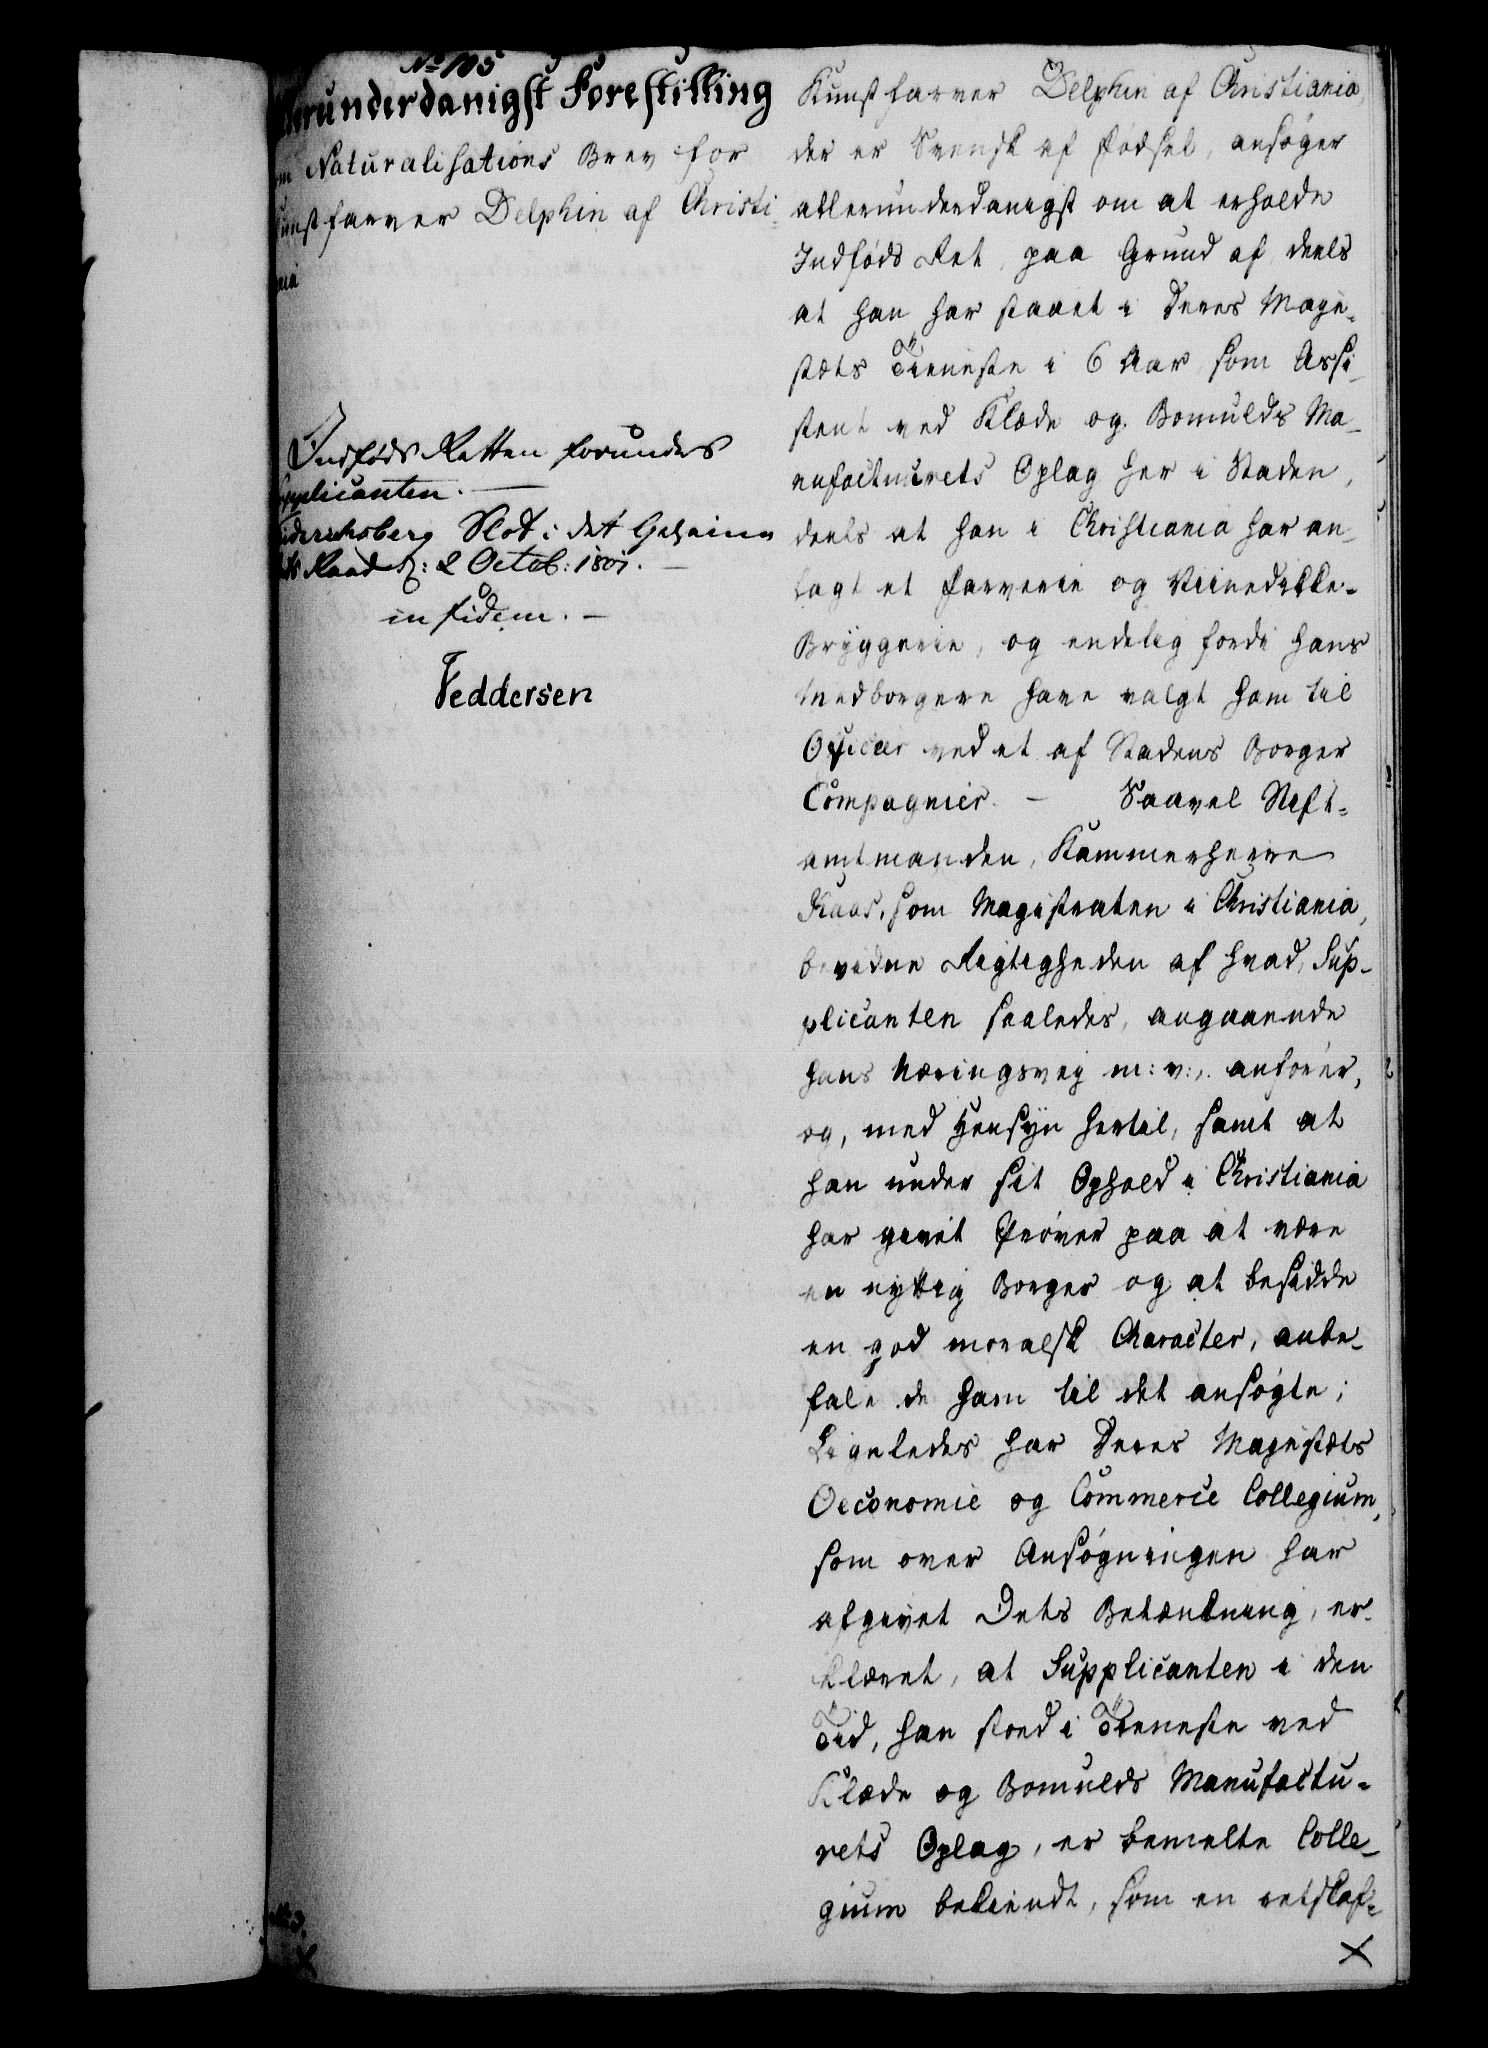 No 105
allerunderdanigst Forestilling
om Naturalisations Brev for
Kunstfarver Delphin af Christi-
ania
Indføds Retten forundes
Supplicanten. —
Friderichsberg Slot i det Geheime
Stats Raad d: 2 Octob: 1801. —
in fidem. —
Feddersen
Kunstfarver Delphin af Christiania,
der er Svensk af Fødsel, ansøger
allerunderdanigst om at erholde
Indføds Ret, paa Grund af, deels
at han har staaet i Deres Maje-
stæts Tieneste i 6 Aar, som Assi-
stent ved Klæde og Bomulds Ma-
nufacturets Oplag her i Staden,
deels at han i Christiania har an-
lagt et Farverie og Viinedikke-
Bryggerie, og endelig fordi hans
Medborgere have valgt ham til
Officeer ved et af Stadens Borger
Compagnier. — Saavel Stift-
amtmanden, Kammerherre
Kaas, som Magistraten i Christiania,
bevidne Rigtigheden af hvad, Sup-
plicanten saaledes, angaaende
hans Næringsvej m: v:, anfører,
og, med Hensyn hertil, samt at
han under sit Ophold i Christiania
har givet Prøver paa at være
en nyttig Borger og at besidde
en god moralsk Character, anbe-
fale de ham til det ansøgte;
Ligeledes har Deres Majestæts
Oeconomie og Commerce Collegium,
som over Ansøgningen har
afgivet Dets Betænkning, er-
klæret, at Supplicanten i den
Tid, han stoed i Tieneste ved
Klæde og Bomulds Manufactu-
rets Oplag, er bemelte Colle-
gium bekiendt, som en retskaf-